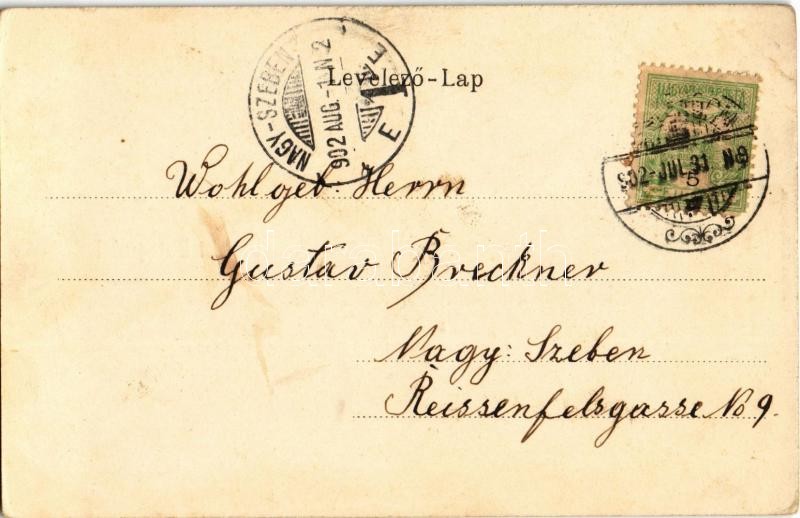 NAGY-SZEBEN
902 AUG.-1.N 2
Levelező-Lap
902-JUL.31 N9
5
Wohlgeb. Herrn
Gustav Breckner
Nagy: Szeben
Reissenfelsgasse No 9.